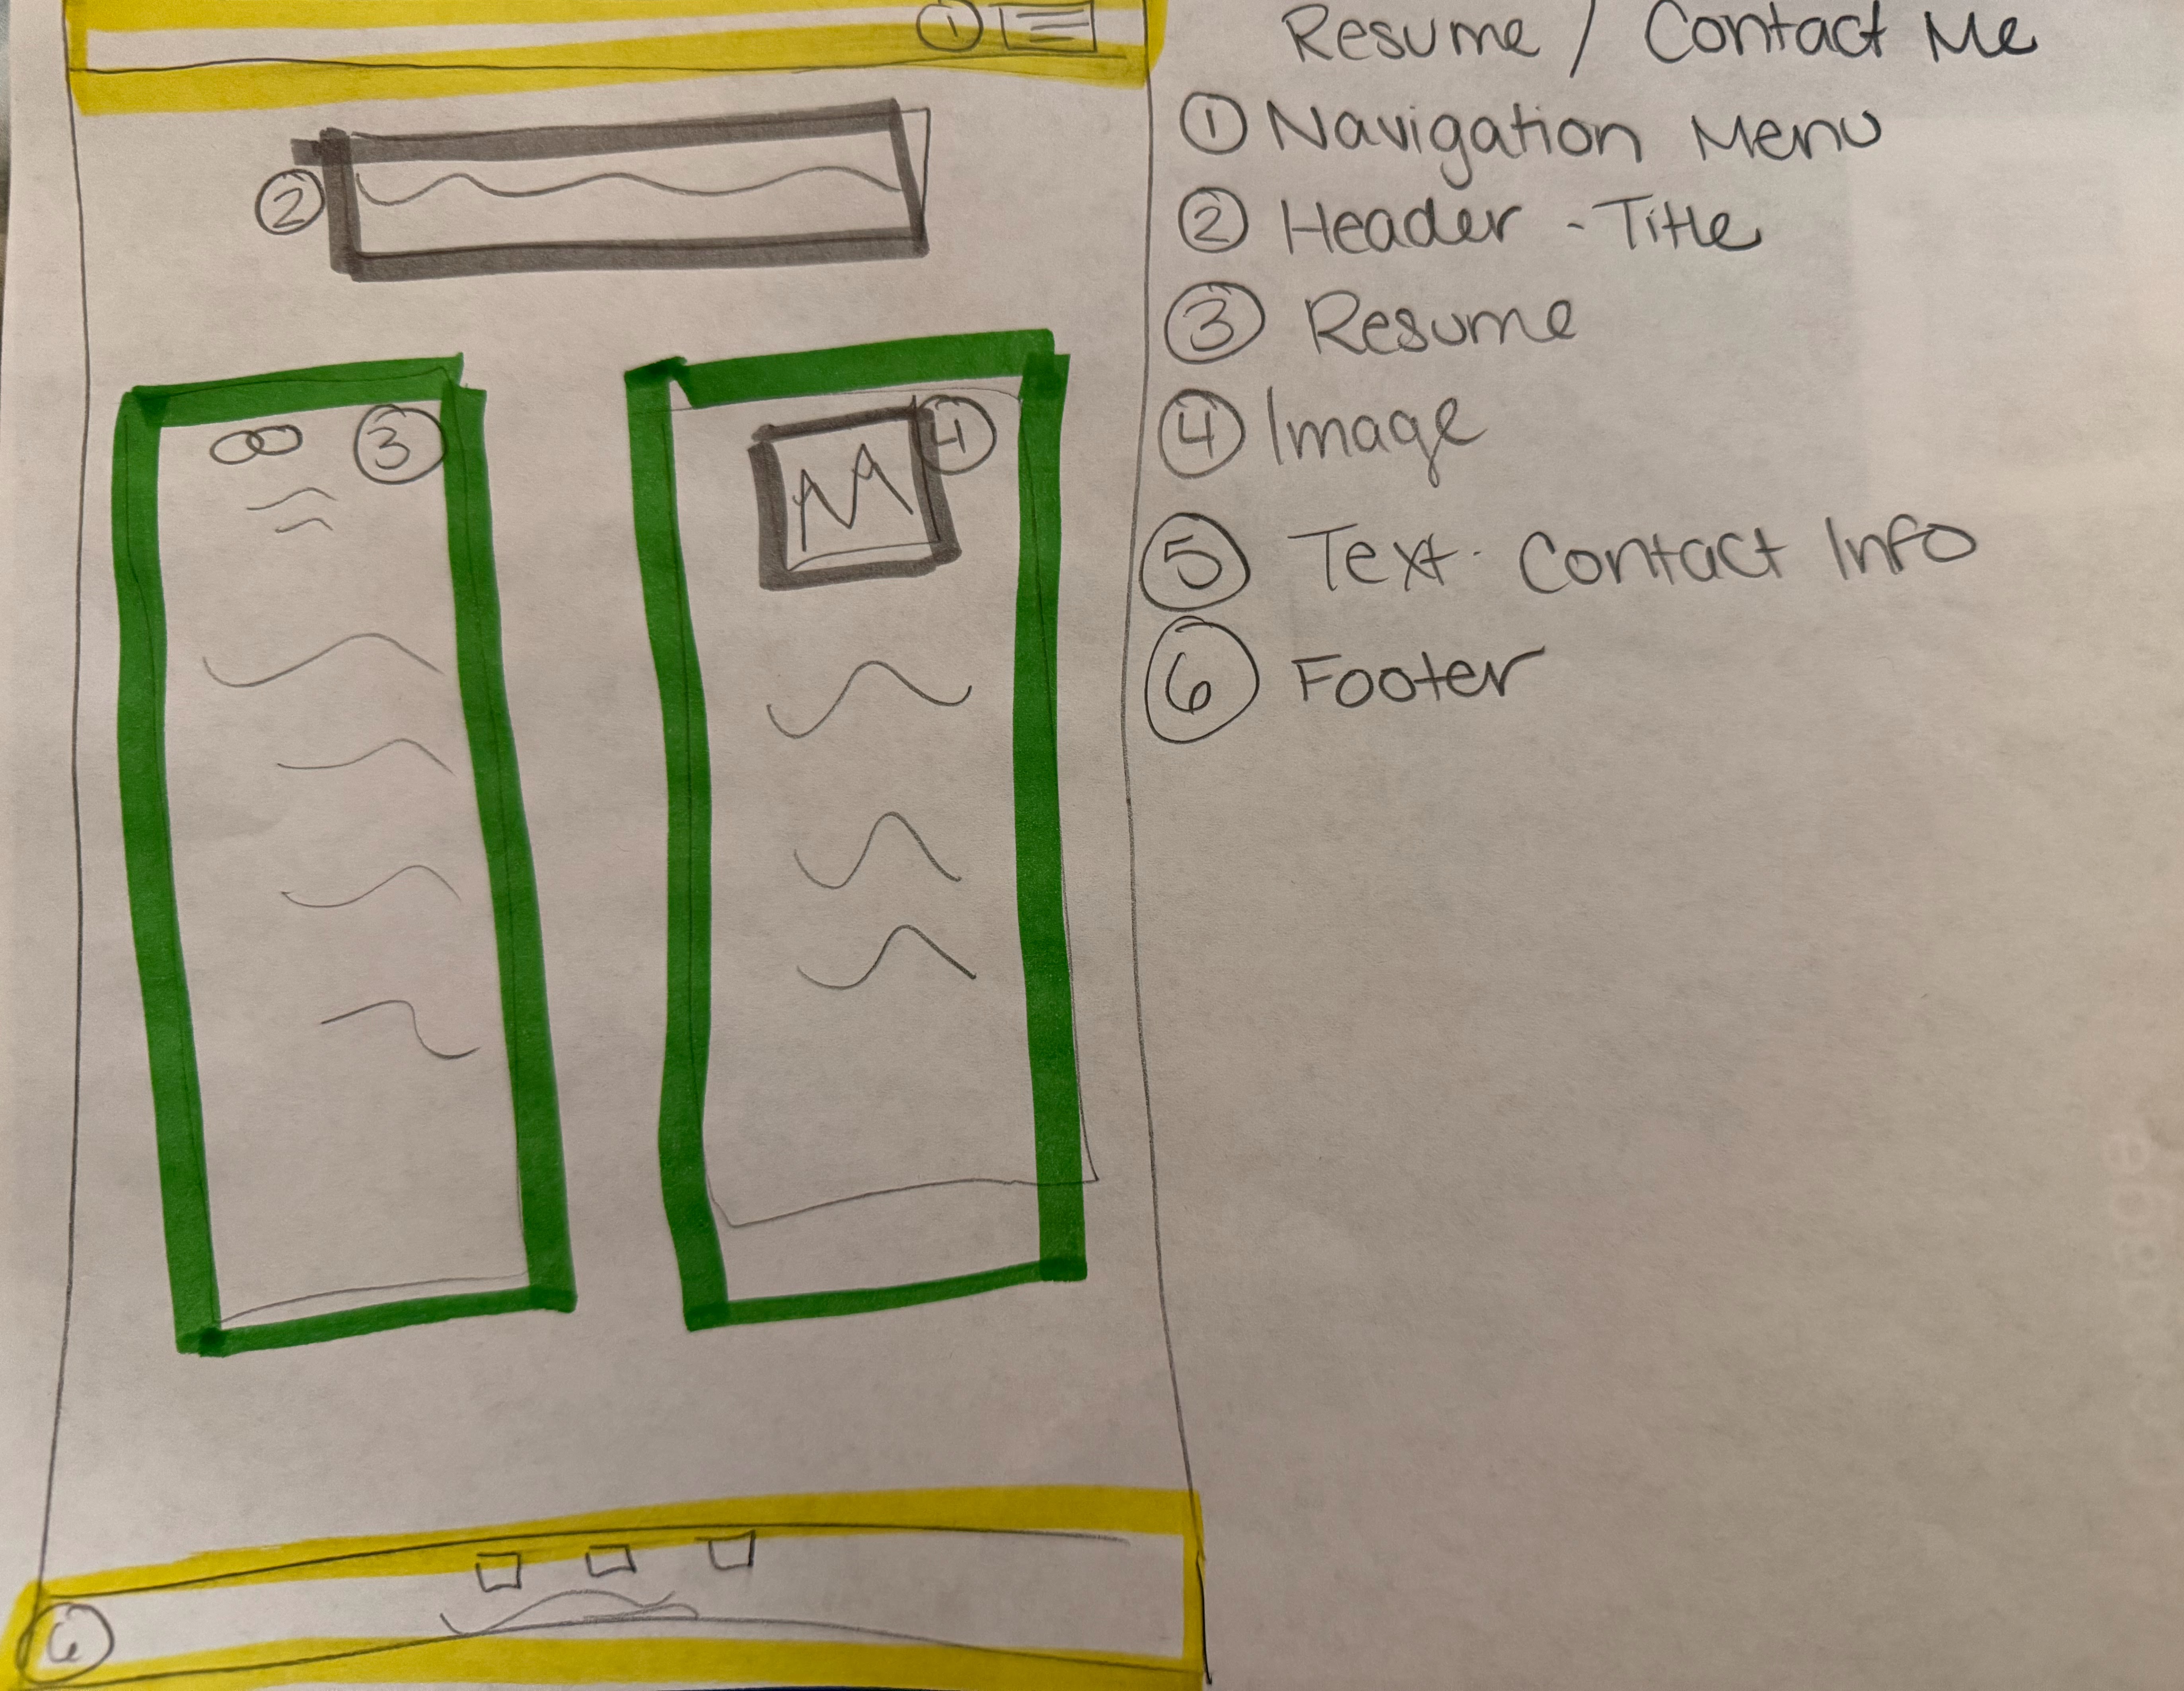 Resume / Contact Me
① Navigation Menu
② Header - Title
③ Resume
④ Image
⑤ Text - Contact Info
⑥ Footer
①
②
③
④
⑥